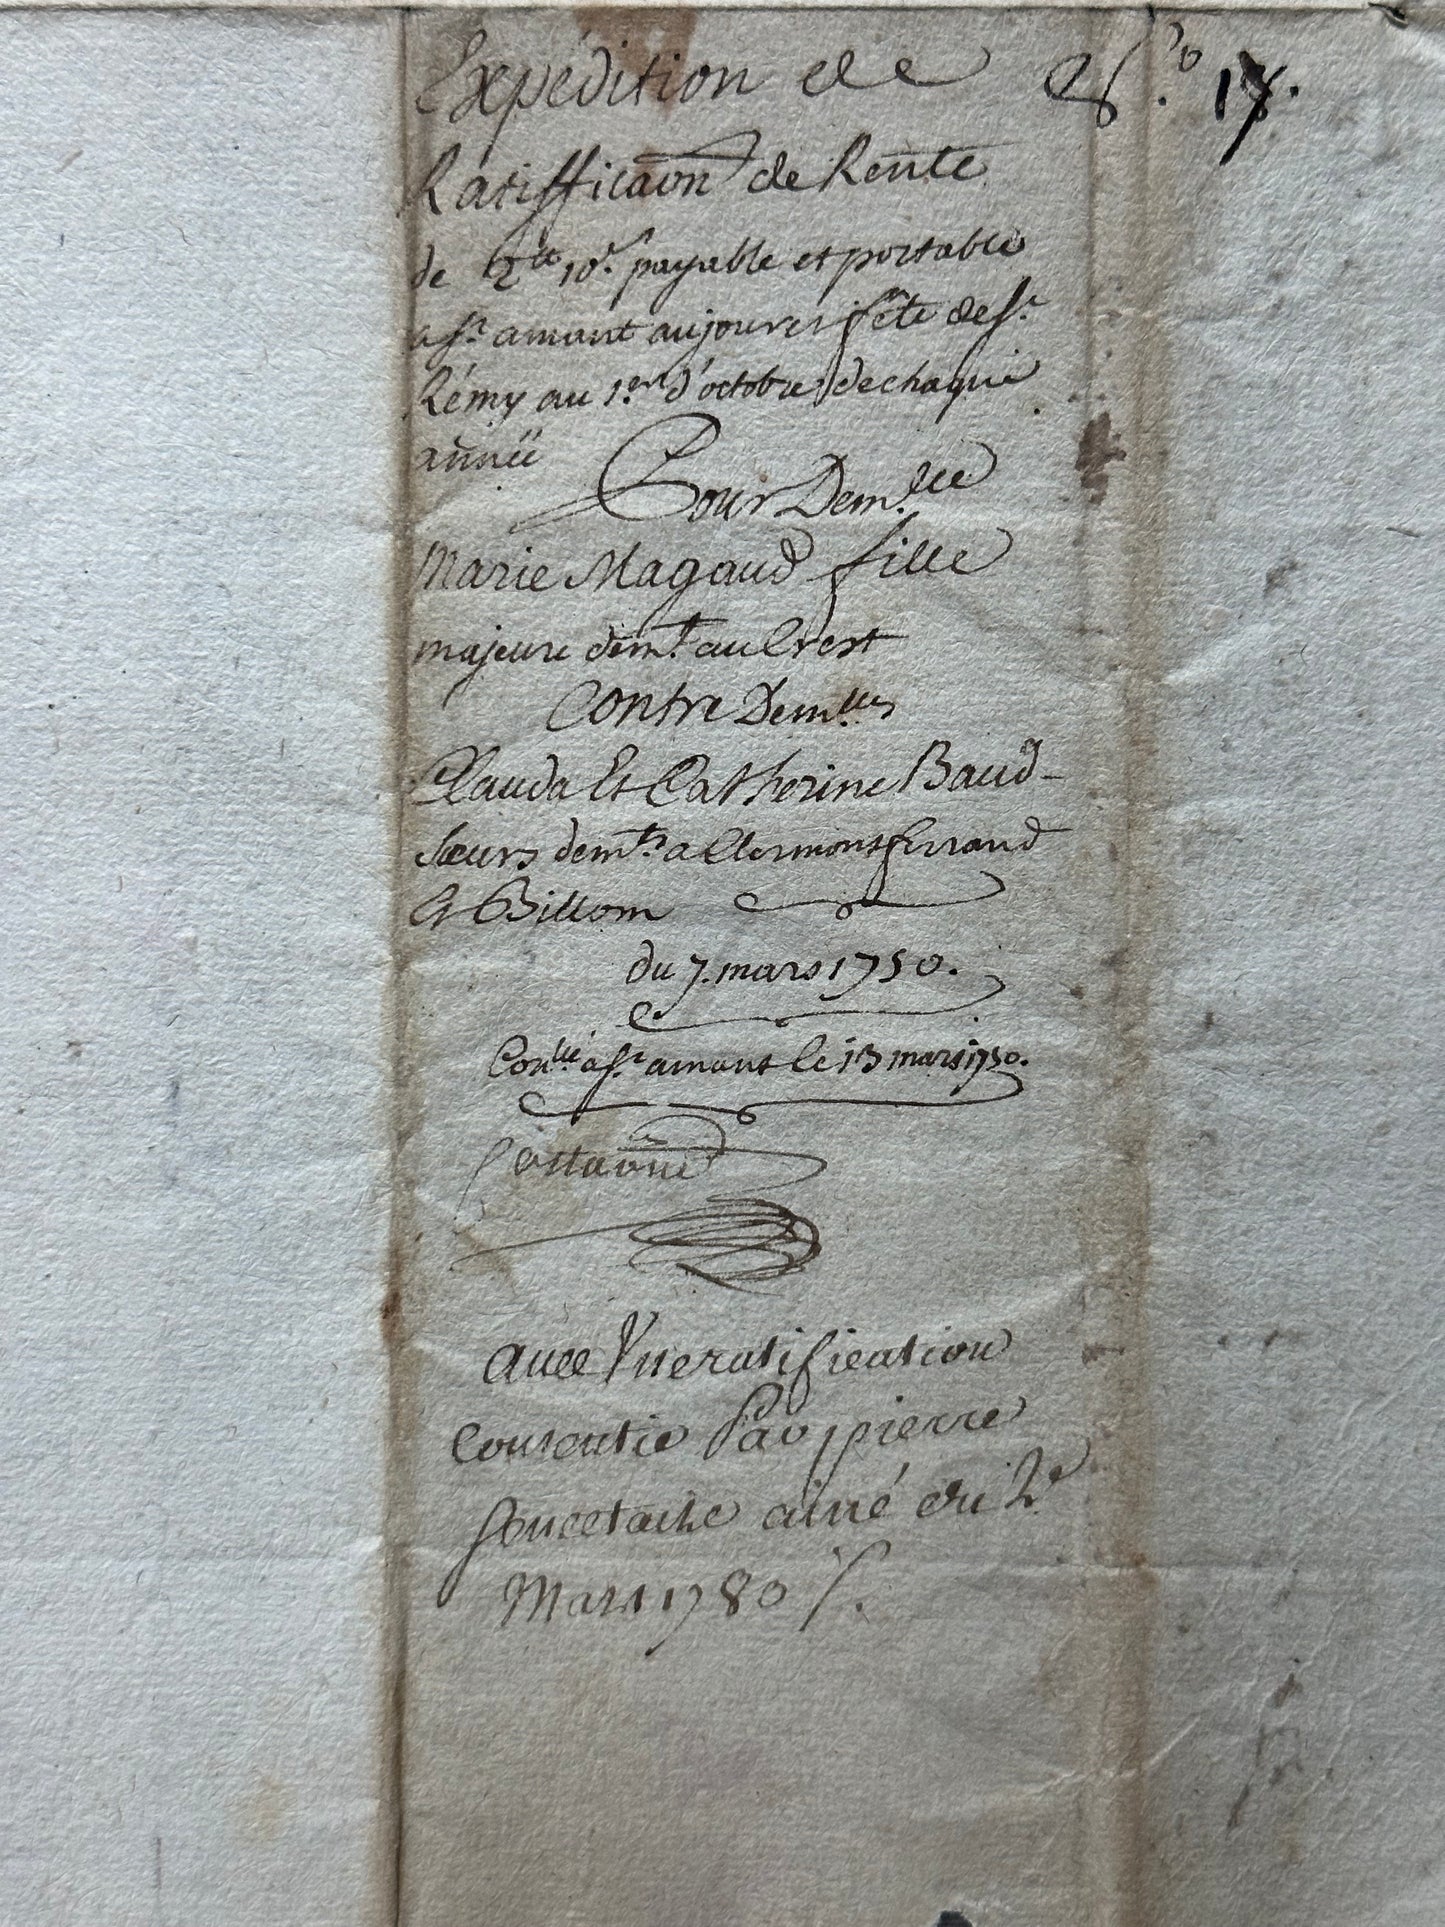 Expédition de
Ratifficaon de Rente
de 2tt 10s. payable et portable
a st. amant au jour et fête de st.
Rémy au 1er. d'octobre de chaque
année
Pour Dem.lle
Marie Magaud fille
majeure dem.t au Crest
Contre Dem.lles
Clauda Et Catherine Baud-
sœurs dem.ts a Clermontferrand
Et Billom
du 7. mars 1750.
Con.llé a st. amant le 13 mars 1750.
avec Une ratification
Consentie Par pierre
aîné du 2e
Mars 1780